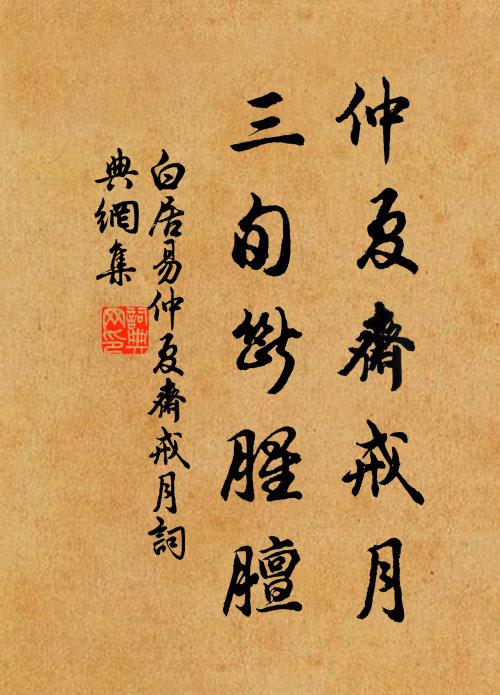 仲夏齋戒月
三旬斷腥膻
白居易仲夏齋戒月詞
典網集
詞典
網印